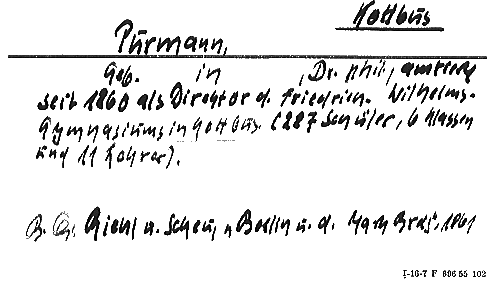 Kottbus
Purmann,
Geb. in , Dr. phil, amtierte
seit 1860 als Direktor d. Friedrich-Wilhelms-
Gymnasiums in Cottbus (287 Schüler, 6 Klassen
und 11 Lehrer).
Riehl u. Scheu, Berlin u. d. Mark Brdg. 1861
I-16-7 F 696 55 102